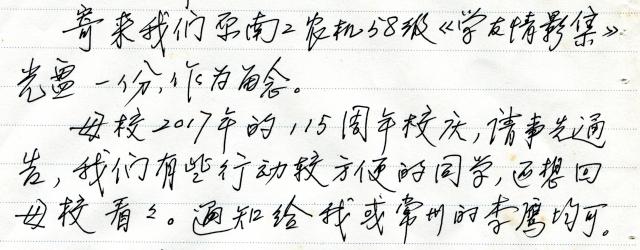 寄来我们原南工农机58级《学友情影集》
光盘一份，作为留念。
母校2017年的115周年校庆，请事先通
告，我们有些行动较方便的同学，还想回
母校看看。通知给我或常州的李鹰均可。